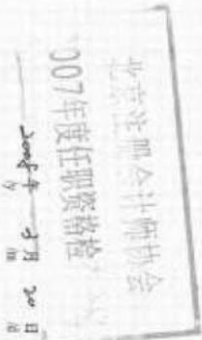 北京注册会计师协会
007年度任职资格检
2008年 5月 20日